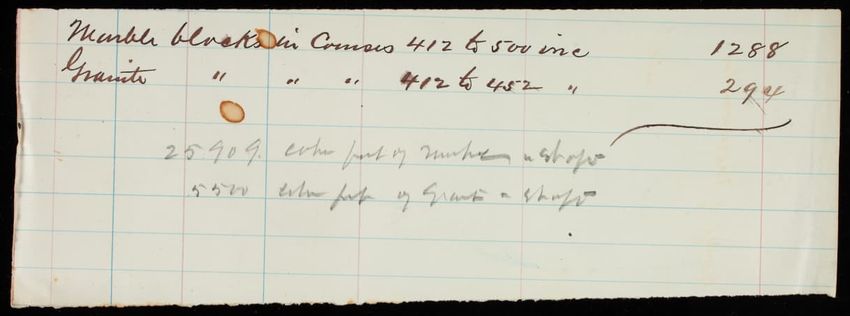 Marble blocks in Courses 412 to 500 inc 1288
Granite " " " 412 to 452 " 294
25909. cubic feet of Marble in Shaft
5500 cubic feet of Granite in Shaft